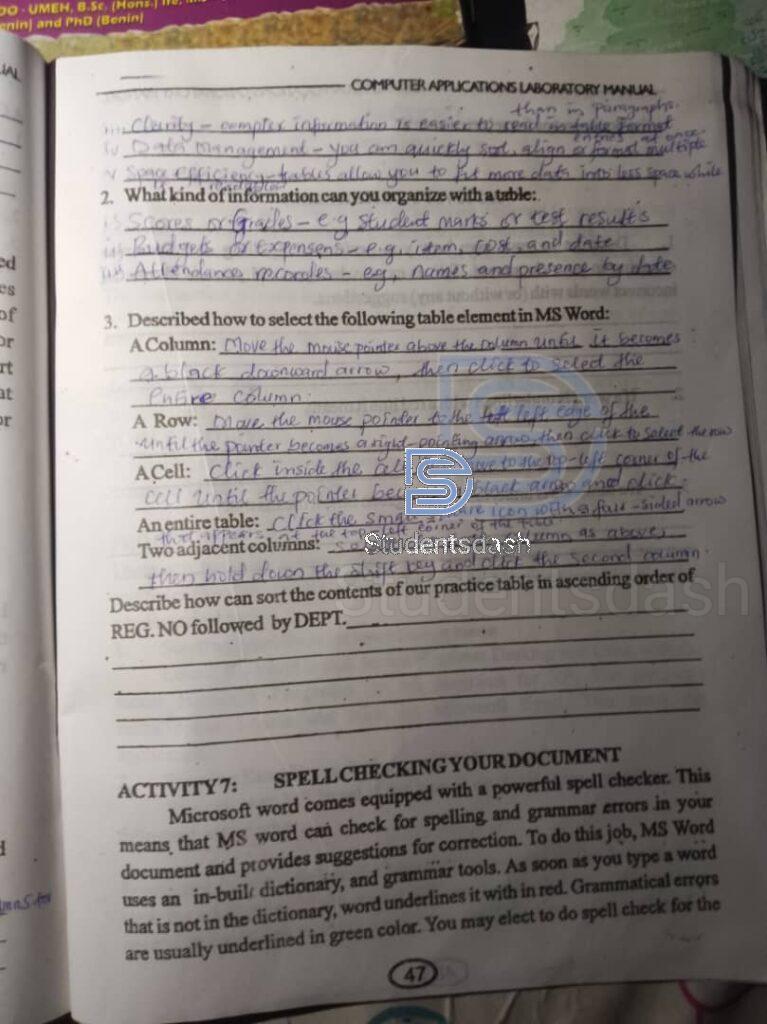 DO - UMEH, B.Sc, (Hons.)
enin) and PhD (Benin)
COMPUTER APPLICATIONS LABORATORY MANUAL
than in Paragraphs.
Clarity - complex information is easier to read in table format
entries at once
iv Data Management - you can quickly sort, align or format multiple
v Space efficiency - tables allow you to fit more data into less space while
2. What kind of information can you organize with a table:
i Scores or Grades - e.g student marks or test results
ii Budgets or Expensens - e.g, item, cost, and date
iii Attendance recordes - eg, names and presence by date
3. Described how to select the following table element in MS Word:
A Column: Move the mouse pointer above the column until it becomes
a black downward arrow, then click to select the
Entire column.
A Row: Move the mouse pointer to the left edge of the
until the pointer becomes a right-pointing arrow, then click to select the row
A Cell: Click inside the cell to the top-left corner of the
cell until the pointer black arrow and click.
An entire table: Click the icon with a four-sided arrow
that appears at the top left corner of the table
Two adjacent columns: column as above,
then hold down the shift key and click the second column.
Studentsdash
Studentsdash
Describe how can sort the contents of our practice table in ascending order of
REG. NO followed by DEPT.
ACTIVITY 7: SPELL CHECKING YOUR DOCUMENT
Microsoft word comes equipped with a powerful spell checker. This
means that MS word can check for spelling and grammar errors in your
document and provides suggestions for correction. To do this job, MS Word
uses an in-built dictionary, and grammar tools. As soon as you type a word
that is not in the dictionary, word underlines it with in red. Grammatical errors
are usually underlined in green color. You may elect to do spell check for the
47